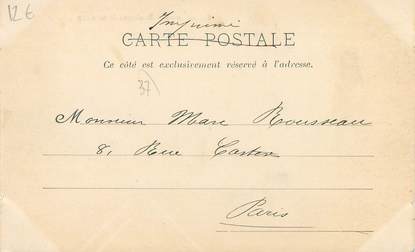 12€
Imprimé
CARTE POSTALE
Ce côté est exclusivement réservé à l'adresse.
37)
Monsieur Marc Rousseau
8, Rue Castex
Paris